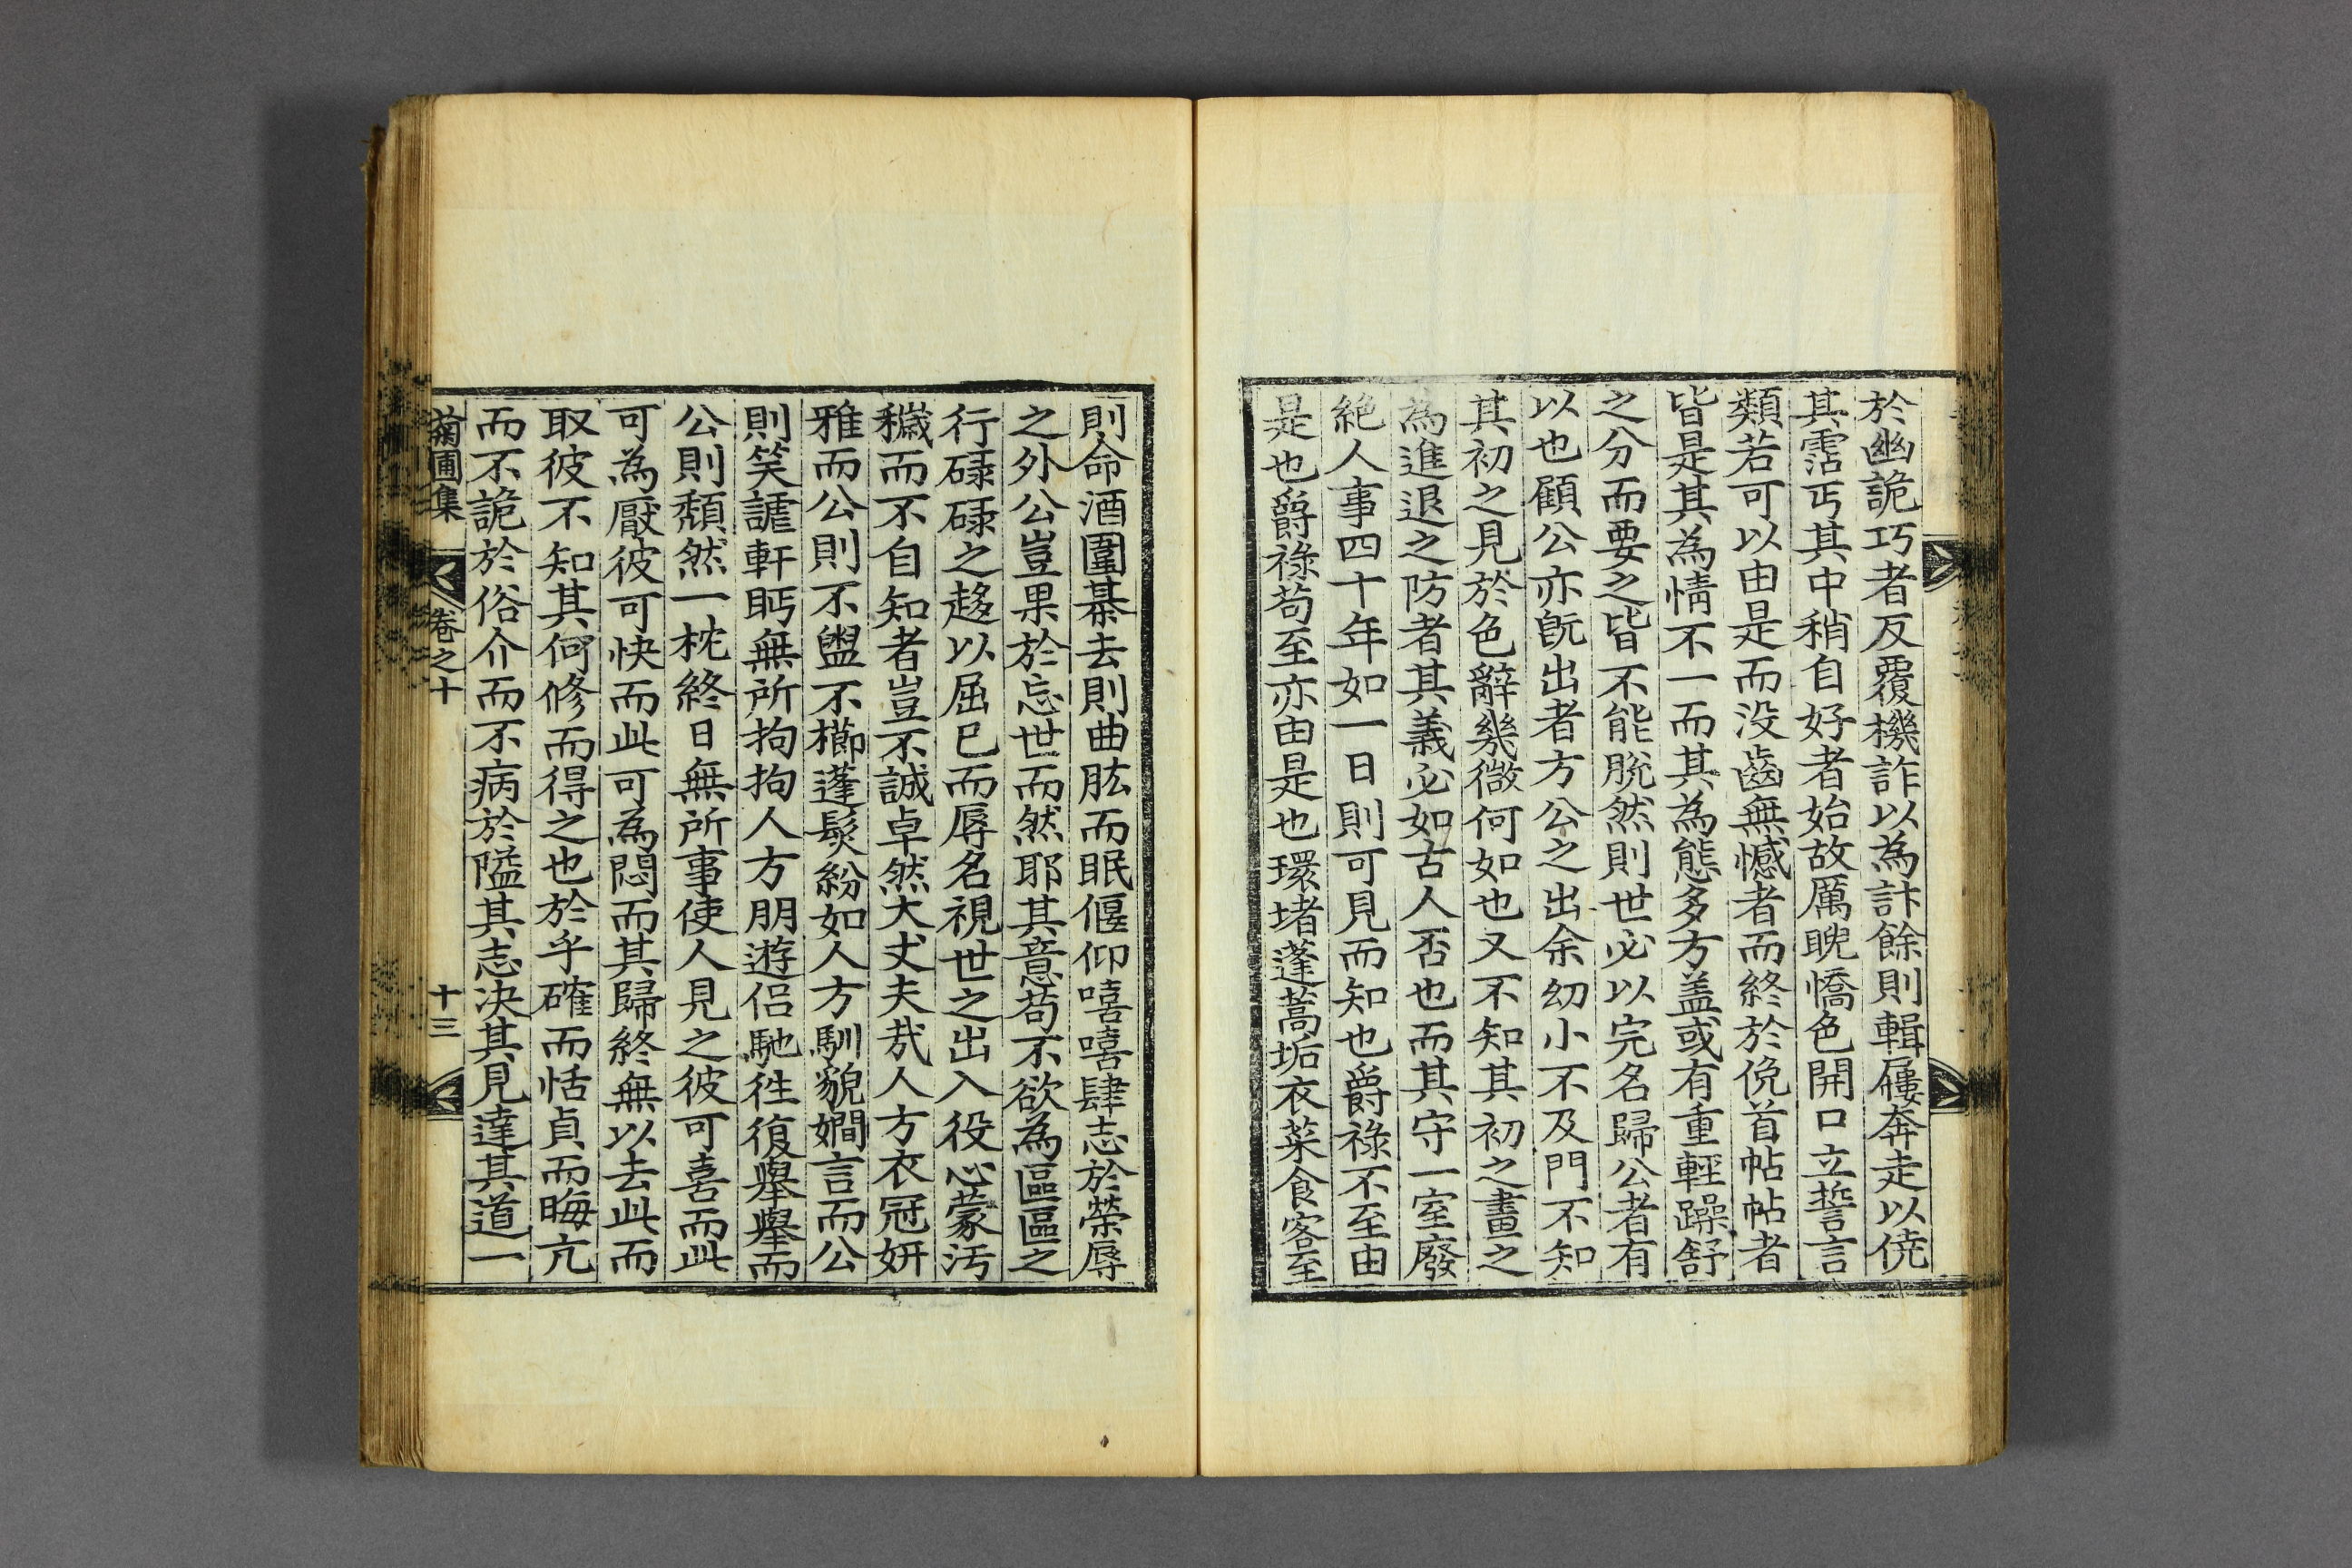 於幽詭巧者反覆機詐以為計餘則輯屨奔走以僥
其霑丐其中稍自好者始故厲睨憍色開口立誓言
類若可以由是而没齒無憾者而終於俛首帖帖者
皆是其為情不一而其為態多方盖或有重輕躁舒
之分而要之皆不能脫然則世必以完名歸公者有
以也顧公亦旣出者方公之出余幼小不及門不知
其初之見於色辭幾微何如也又不知其初之畫之
為進退之防者其義必如古人否也而其守一室廢
絶人事四十年如一日則可見而知也爵祿不至由
是也爵祿苟至亦由是也環堵蓬蒿垢衣菜食客至
則命酒圍棊去則曲肱而眠偃仰嘻嘻肆志於榮辱
之外公豈果於忘世而然耶其意苟不欲為區區之
行碌碌之趍以屈已而辱名視世之出入役心蒙汚
穢而不自知者豈不誠卓然大丈夫㢤人方衣冠妍
雅而公則不盥不櫛蓬髮紛如人方馴貌嫺言而公
則笑謔軒眄無所拘拘人方朋遊侣馳徃復擧擧而
公則頹然一枕終日無所事使人見之彼可喜而此
可為厭彼可快而此可為悶而其歸終無以去此而
取彼不知其何修而得之也於乎確而恬貞而晦亢
而不詭於俗介而不病於隘其志决其見達其道一
菊圃集 卷之十 十三